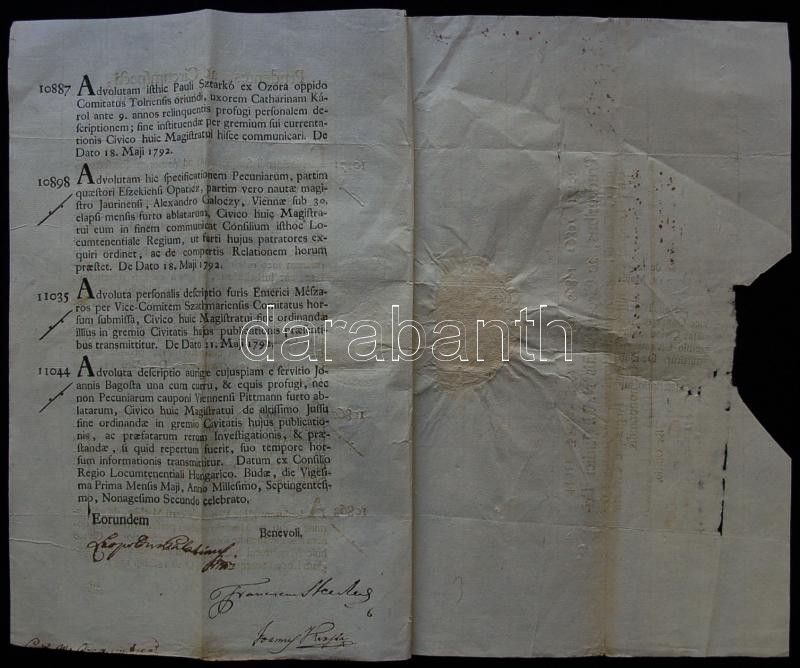 10887 Advolutam isthic Pauli Sztarkó ex Ozora oppido
Comitatus Tolnensis oriundi, uxorem Catharinam Ká-
rol ante 9. annos relinquentis profugi personalem de-
scriptionem; sine instituendæ per gremium sui currenta-
tionis Civico huic Magistratui hisce communicari. De
Dato 18. Maji 1792.
10898 Advolutam hic specificationem Pecuniarum, partim
quæstori Eszekiensi Opaticz, partim vero nautæ magi-
stro Jaurinensi, Alexandro Galoczy, Viennæ sub 30.
elapsi mensis furto ablatarum, Civico huic Magistra-
tui eum in finem communicat Consilium isthoc Lo-
cumtenentiale Regium, ut furti hujus patratores ex-
quiri ordinet, ac de compertis Relationem horsum
præstet. De Dato 18. Maji 1792.
11035 Advoluta personalis descriptio furis Emerici Mésza-
ros per Vice-Comitem Szathmariensis Comitatus hor-
sum submissa, Civico huic Magistratui fine ordinandæ
illius in gremio Civitatis hujus publicationis Præsenti-
bus transmittitur. De Dato 21. Maji 1792.
11044 Advoluta descriptio aurigæ cujuspiam e servitio Jo-
annis Bagosta una cum curru, & equis profugi, nec
non Pecuniarum cauponi Viennensi Pittmann furto ab-
latarum, Civico huic Magistratui de altissimo Jussu
fine ordinandæ in gremio Civitatis hujus publicatio-
nis, ac præfatarum rerum Investigationis, & præ-
standæ, si quid repertum fuerit, suo tempore hor-
sum informationis transmittitur. Datum ex Consilio
Regio Locumtenentiali Hungarico. Budæ, die Vigesi-
ma Prima Mensis Maji, Anno Millesimo, Septingentesi-
mo, Nonagesimo Secundo celebrato.
Eorundem
Benevoli.
Franciscus
darabanth